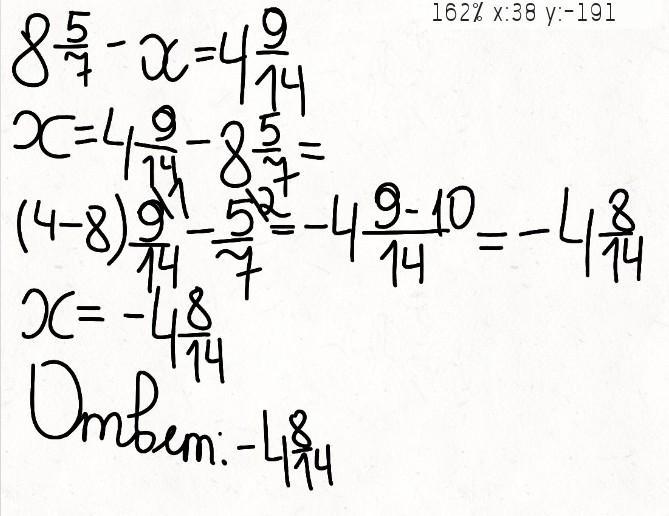 162% x:38 y:-191
8 5/7 - x = 4 9/14
x = 4 9/14 - 8 5/7 =
(4-8) 9/14 \1 - 5/7 \2 = -4 (9-10)/14 = -4 8/14
x = -4 8/14
Ответ: -4 8/14